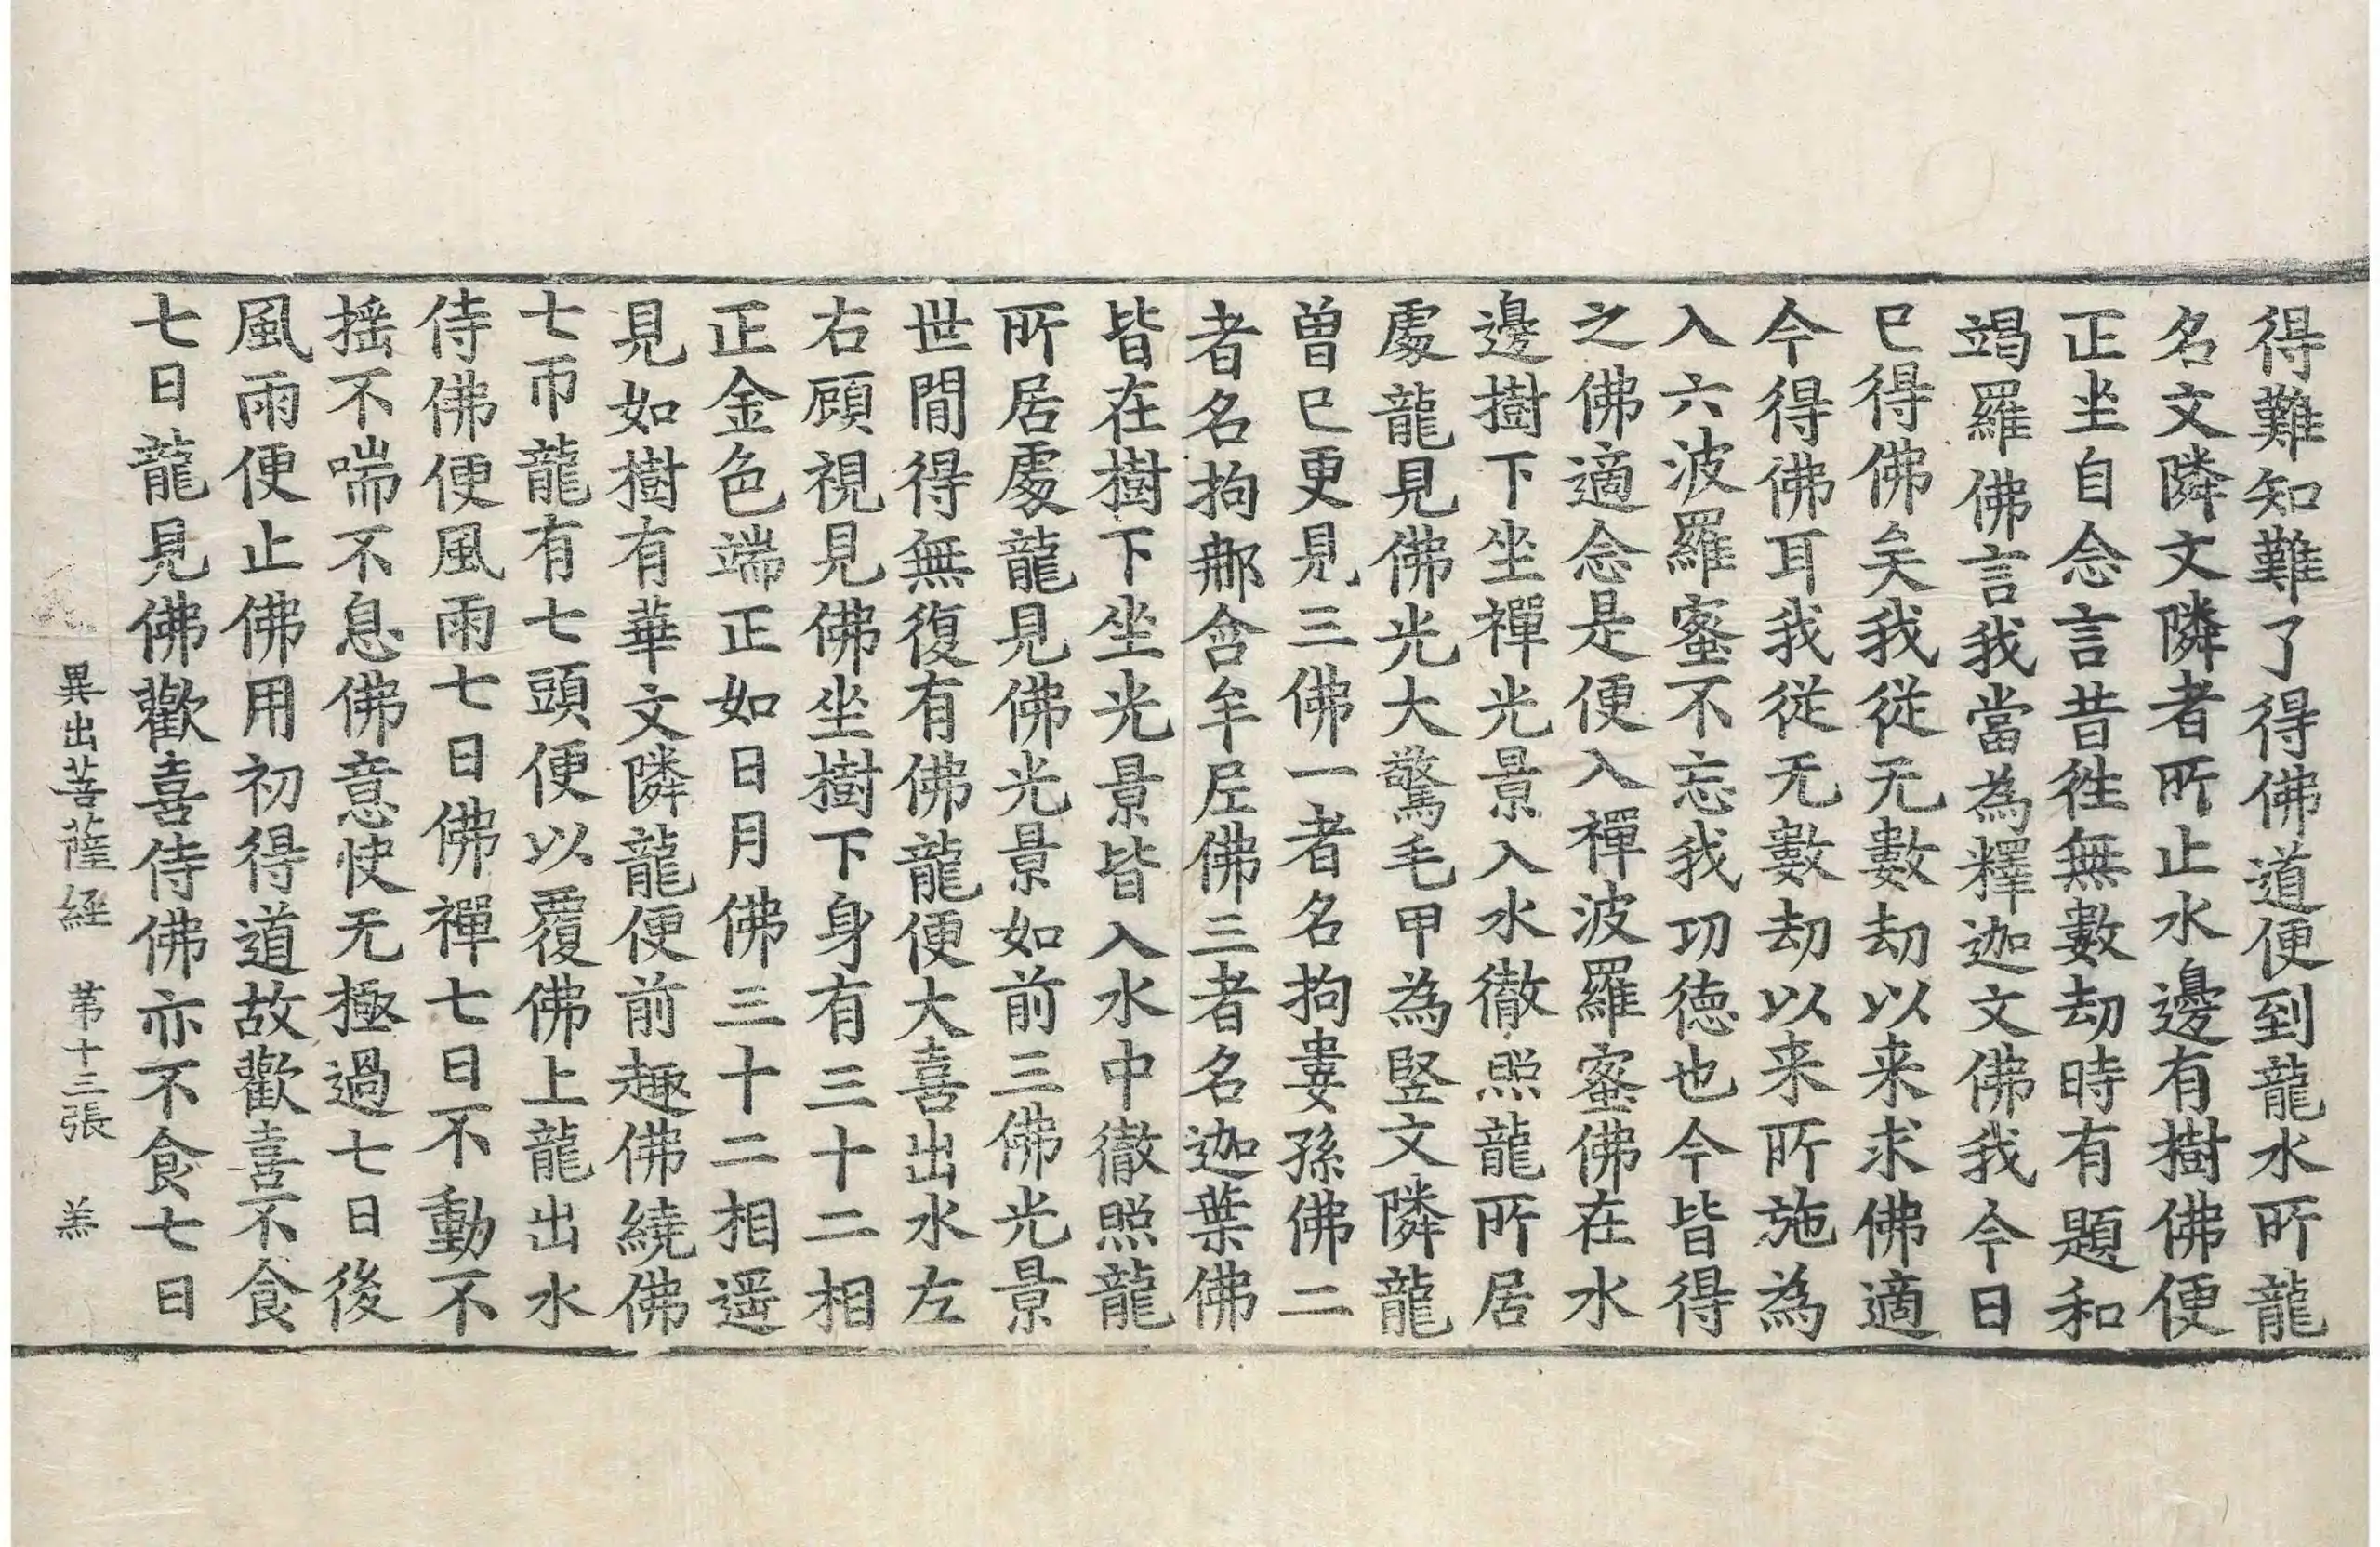 得難知難了得佛道便到龍水所龍
名文隣文隣者所止水邊有樹佛便
正坐自念言昔徃無數劫時有題和
竭羅佛言我當為釋迦文佛我今日
已得佛矣我從无數劫以来求佛適
今得佛耳我從无數劫以来所施為
入六波羅蜜不忘我功德也今皆得
之佛適念是便入禪波羅蜜佛在水
邊樹下坐禪光景入水徹照龍所居
處龍見佛光大驚毛甲為竪文隣龍
曽已更見三佛一者名拘婁孫佛二
者名拘那含牟尼佛三者名迦葉佛
皆在樹下坐光景皆入水中徹照龍
所居處龍見佛光景如前三佛光景
世閒得無復有佛龍便大喜出水左
右顧視見佛坐樹下身有三十二相
正金色端正如日月佛三十二相遥
見如樹有華文隣龍便前趣佛繞佛
七帀龍有七頭便以覆佛上龍出水
侍佛便風雨七日佛禪七日不動不
揺不喘不息佛意快无極過七日後
風雨便止佛用初得道故歡喜不食
七日龍見佛歡喜侍佛亦不食七日
異出菩薩経 苐十三張 羔